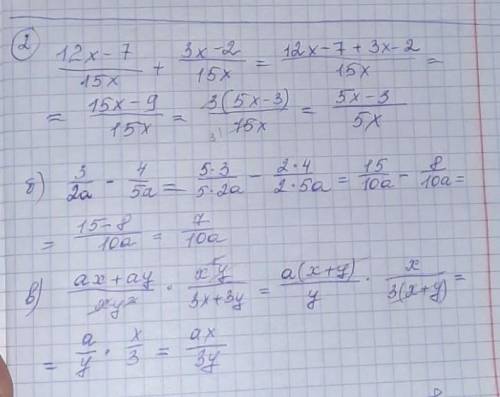 2) (12x-7)/(15x) + (3x-2)/(15x) = (12x-7+3x-2)/(15x) =
= (15x-9)/(15x) = (3(5x-3))/(15x) = (5x-3)/(5x)
б) 3/(2a) - 4/(5a) = (5·3)/(5·2a) - (2·4)/(2·5a) = 15/(10a) - 8/(10a) =
= (15-8)/(10a) = 7/(10a)
в) (ax+ay)/(xyx) · (xy)/(3x+3y) = (a(x+y))/y · x/(3(x+y)) =
= a/y · x/3 = ax/(3y)